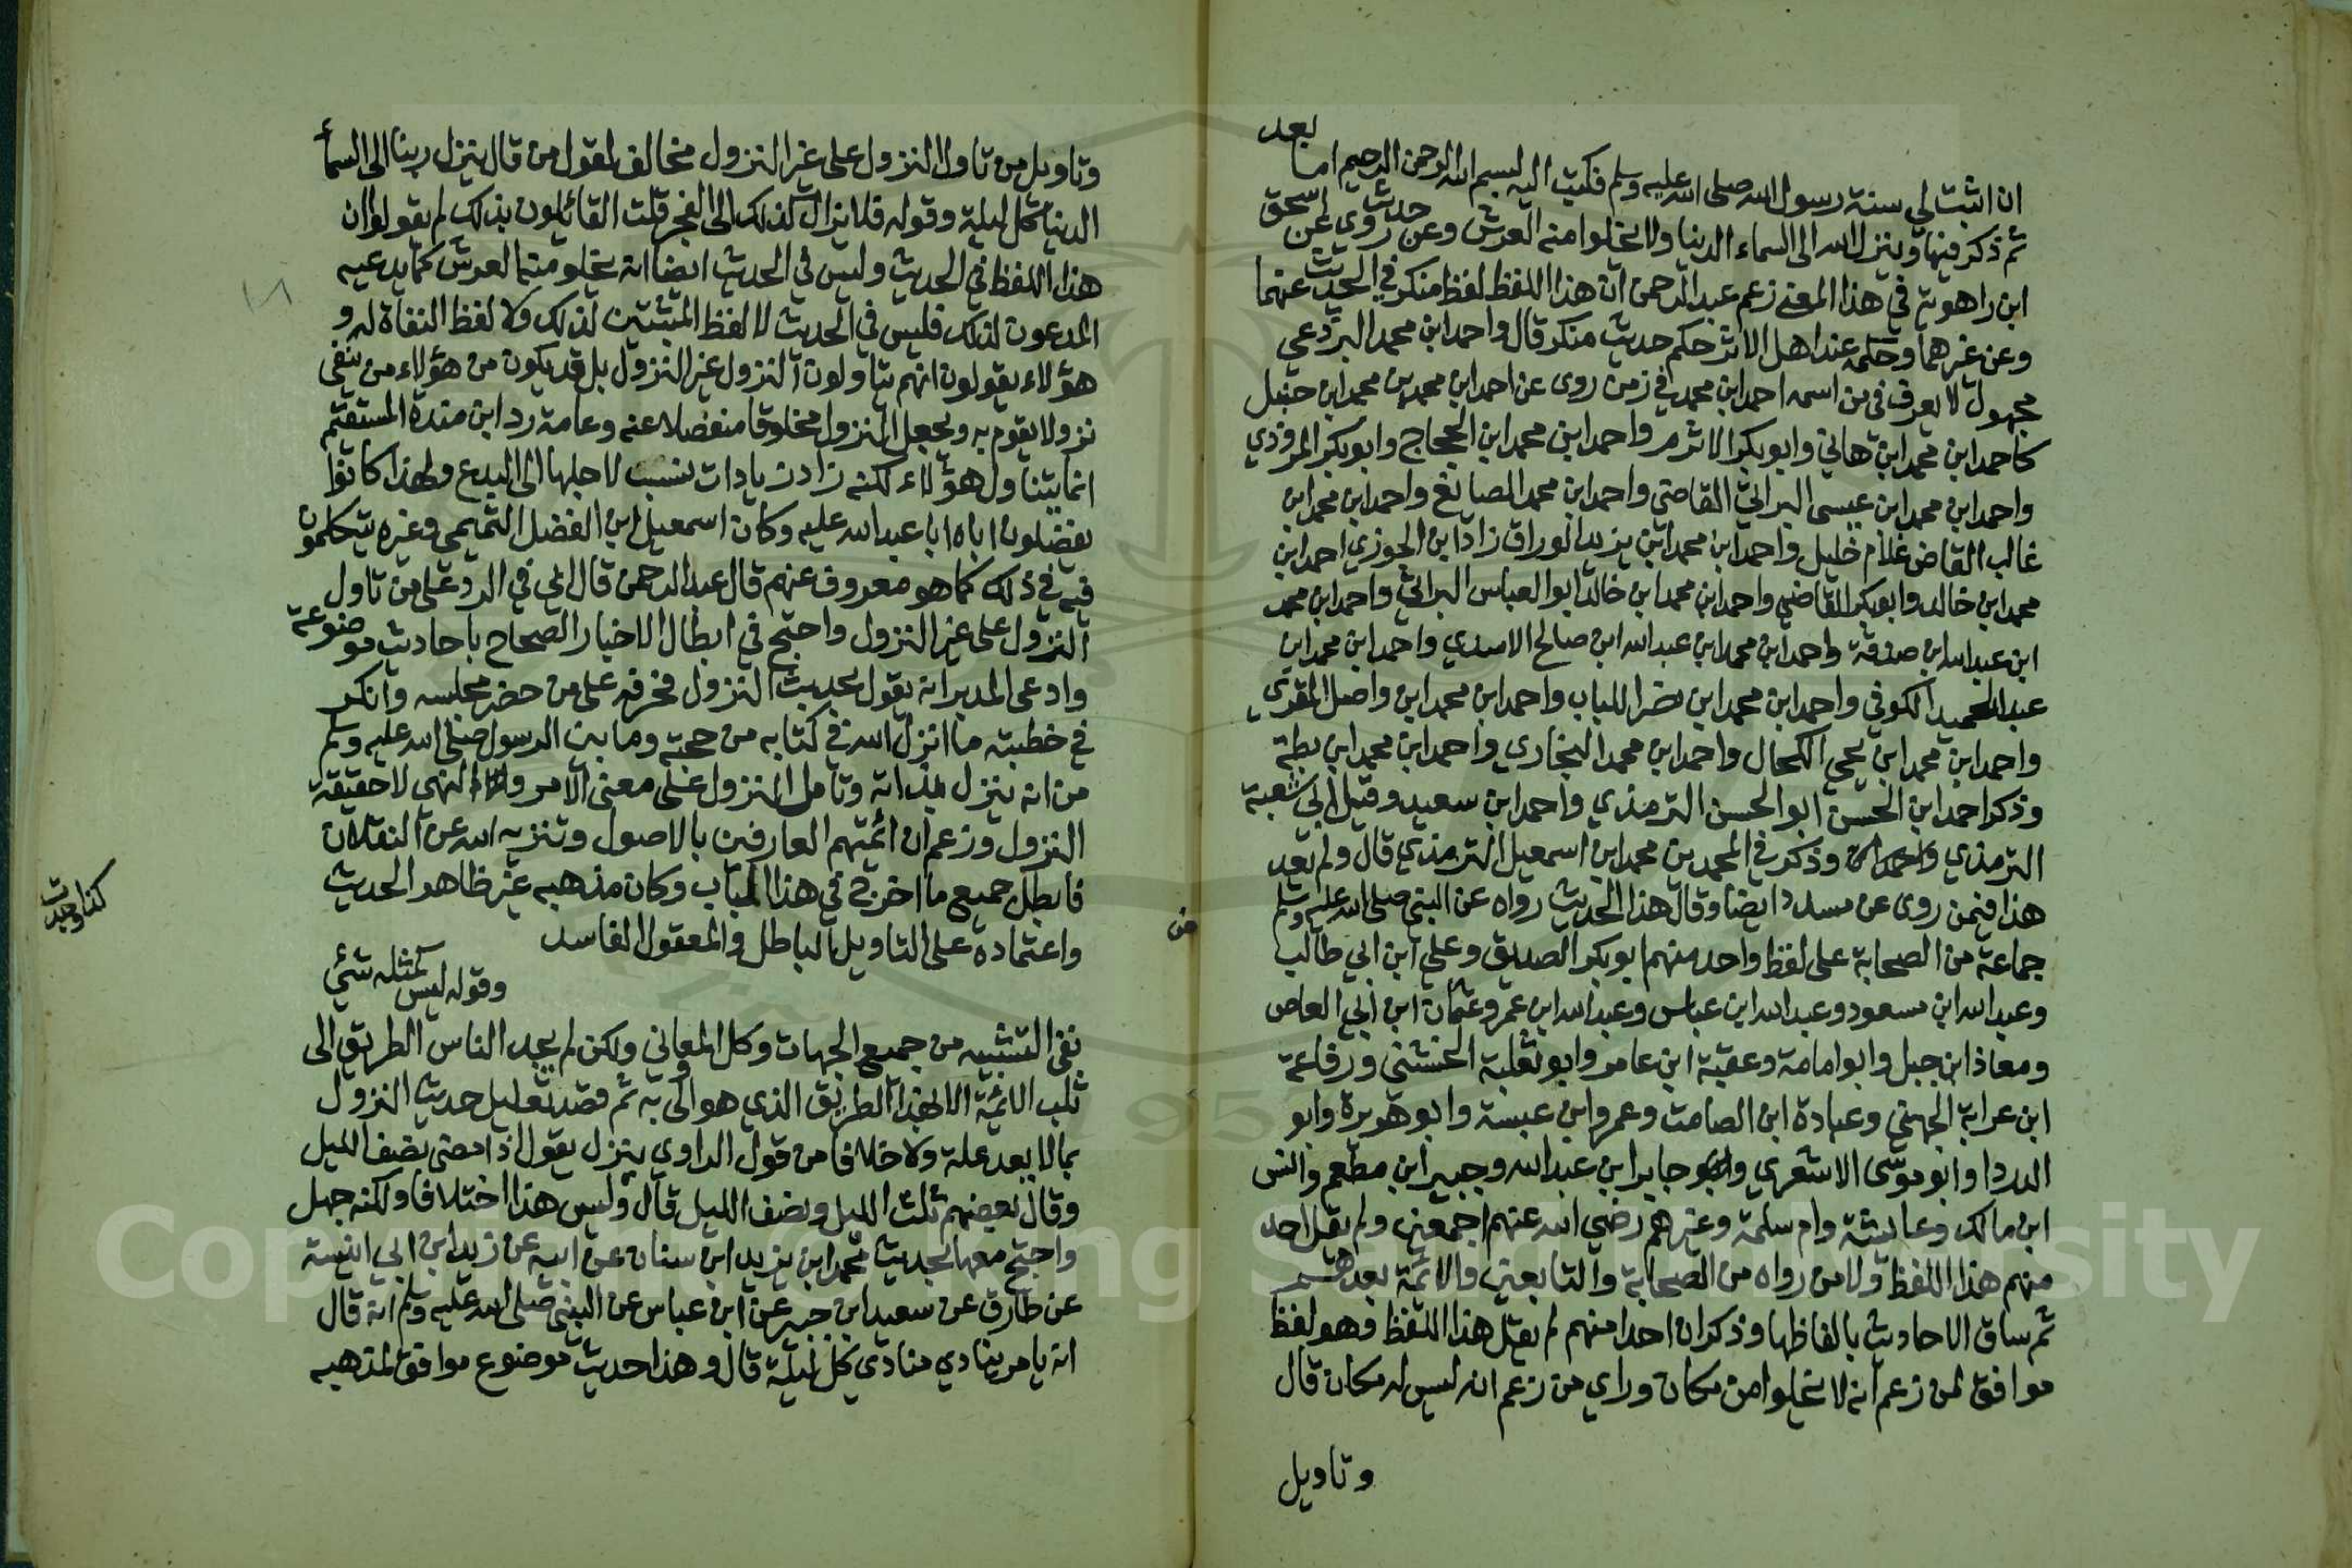 ان اثبت لي سنة رسول الله صلى الله عليه وسلم فكتب اليه بسم الله الرحمن الرحيم اما بعد
ثم ذكر فيها وينزل الله الى السماء الدنيا ولا يخلوا منه العرش وعن حديث روي عن اسحق
ابن راهوية في هذا المعنى زعم عبد الرحمن ان هذا اللفظ لفظ منكر في الحديث عنهما
وعن غيرهما وحكمه عند اهل الاثر حكم حديث منكر قال واحمد ابن محمد البردعي
مجهول لا يعرف في من اسمه احمد ابن محمد في زمن روى عن احمد ابن محمد بن محمد ابن حنبل
كاحمد ابن محمد ابن هاني وابوبكر الاثرم واحمد ابن محمد ابن الحجاج وابوبكر المروذي
واحمد ابن محمد ابن عيسى البراثي القاضي واحمد ابن محمد الصايغ واحمد ابن محمد ابن
غالب القاص غلام خليل واحمد ابن محمد ابن يزيد الوراق زاد ابن الجوزي احمد ابن
محمد ابن خالد وابوبكر القاضي واحمد ابن محمد ابن خالد ابو العباس البراثي واحمد ابن محمد
ابن عبد الله ابن صدقة واحمد ابن محمد ابن عبد الله ابن صالح الاسدي واحمد ابن محمد ابن
عبد الحميد الكوفي واحمد ابن محمد ابن نصر اللباب واحمد ابن محمد ابن واصل المقري
واحمد ابن محمد ابن يحيى الكحال واحمد ابن محمد البخاري واحمد ابن محمد ابن بطة
وذكر احمد ابن الحسن ابو الحسن الترمذي واحمد ابن سعيد وقيل ابي شعبة
الترمذي وذكر في المحمد بن محمد ابن اسمعيل الترمذي قال ولم تعد
هذا فيمن روى عن مسدد ايضا وقال هذا الحديث رواه عن النبي صلى الله عليه وسلم
جماعة من الصحابة على لفظ واحد منهم ابوبكر الصديق وعلي ابن ابي طالب
وعبد الله ابن مسعود وعبد الله ابن عباس وعبد الله ابن عمر وعثمان ابن ابي العاص
ومعاذ ابن جبل وابو امامة وعقبة ابن عامر وابو ثعلبة الخشني ورفاعة
ابن عرابة الجهني وعبادة ابن الصامت وعمرو ابن عبسة وابو هويرة وابو
الدردا وابو موسى الاشعري وجابر ابن عبد الله وجبير ابن مطعم وانس
ابن مالك وعايشة وام سلمة وغيرهم رضي الله عنهم اجمعين ولم يقل احد
منهم هذا اللفظ ولا من رواه من الصحابة والتابعين والائمة بعدهم
ثم ساق الاحاديث بالفاظها وذكر ان احدا منهم لم يقل هذا اللفظ فهو لفظ
موافق لمن زعم انه لا يخلوا من مكان وراي من زعم انه ليس له مكان قال
وتاويل
وتاويل من تاول النزول على غير النزول مخالف لقول من قال ينزل ربنا الى السماء
الدنيا كل ليلة وقوله فلا يزال كذلك الى الفجر قلت القائلون بذلك لم يقولوا ان
هذا اللفظ في الحديث وليس في الحديث ايضا انه يخلو منه العرش كما يدعيه
المدعون لذلك فليس في الحديث لا لفظ المثبتين لذلك ولا لفظ النفاة له و
هؤلاء يقولون انهم يتاولون النزول غير النزول بل قد يكون من هؤلاء من ينفي
نزولا يقوم به ويجعل النزول مخلوقا منفصلا عنه وعامة رد ابن مندة المستقيم
انما يتناول هؤلاء لكنه زاد زيادات نسب لاجلها الى البدع ولهذا كانوا
يفضلون اباه ابا عبد الله عليه وكان اسمعيل ابن الفضل التميمي وغيره يتكلمون
فيه في ذلك كما هو معروف عنهم قال عبد الرحمن قال ابي في الرد على من تاول
النزول على غير النزول واحتج في ابطال الاخبار الصحاح باحاديث موضوعة
وادعى المدبر انه يقول بحديث النزول فخرفه على من حضر مجلسه وانكر
في خطبته ما انزل الله في كتابه من حجته وما بين الرسول صلى الله عليه وسلم
من انه ينزل بذاته وتامل النزول على معنى الامر والنهي لا حقيقة
النزول وزعم ان ائمتهم العارفين بالاصول وتنزيه الله عن النقلان
فابطل جميع ما اخرج في هذا الباب وكان مذهبه غير ظاهر الحديث
واعتماده على التاويل الباطل والمعقول الفاسد
وقوله ليس كمثله شئي
كذا وجدت
نفى التشبيه من جميع الجهات وكل المعاني ولكن لم يجد الناس الطريق الى
ثلب الائمة الا بهذا الطريق الذي هو اولى به ثم قصد تعليل حديث النزول
بما لا يعد علة ولا خلافا من قول الراوي ينزل يقول اذا مضى نصف الليل
وقال بعضهم ثلث الليل ونصف الليل قال وليس هذا اختلافا ولكنه جهل
واحتج معها بحديث محمد ابن يزيد ابن سنان عن ابيه عن زيد ابن ابي انيسة
عن طارق عن سعيد ابن جبير عن ابن عباس عن النبي صلى الله عليه وسلم انه قال
انه يامر ينادي منادي كل ليلة قال وهذا حديث موضوع موافق لمذهبه